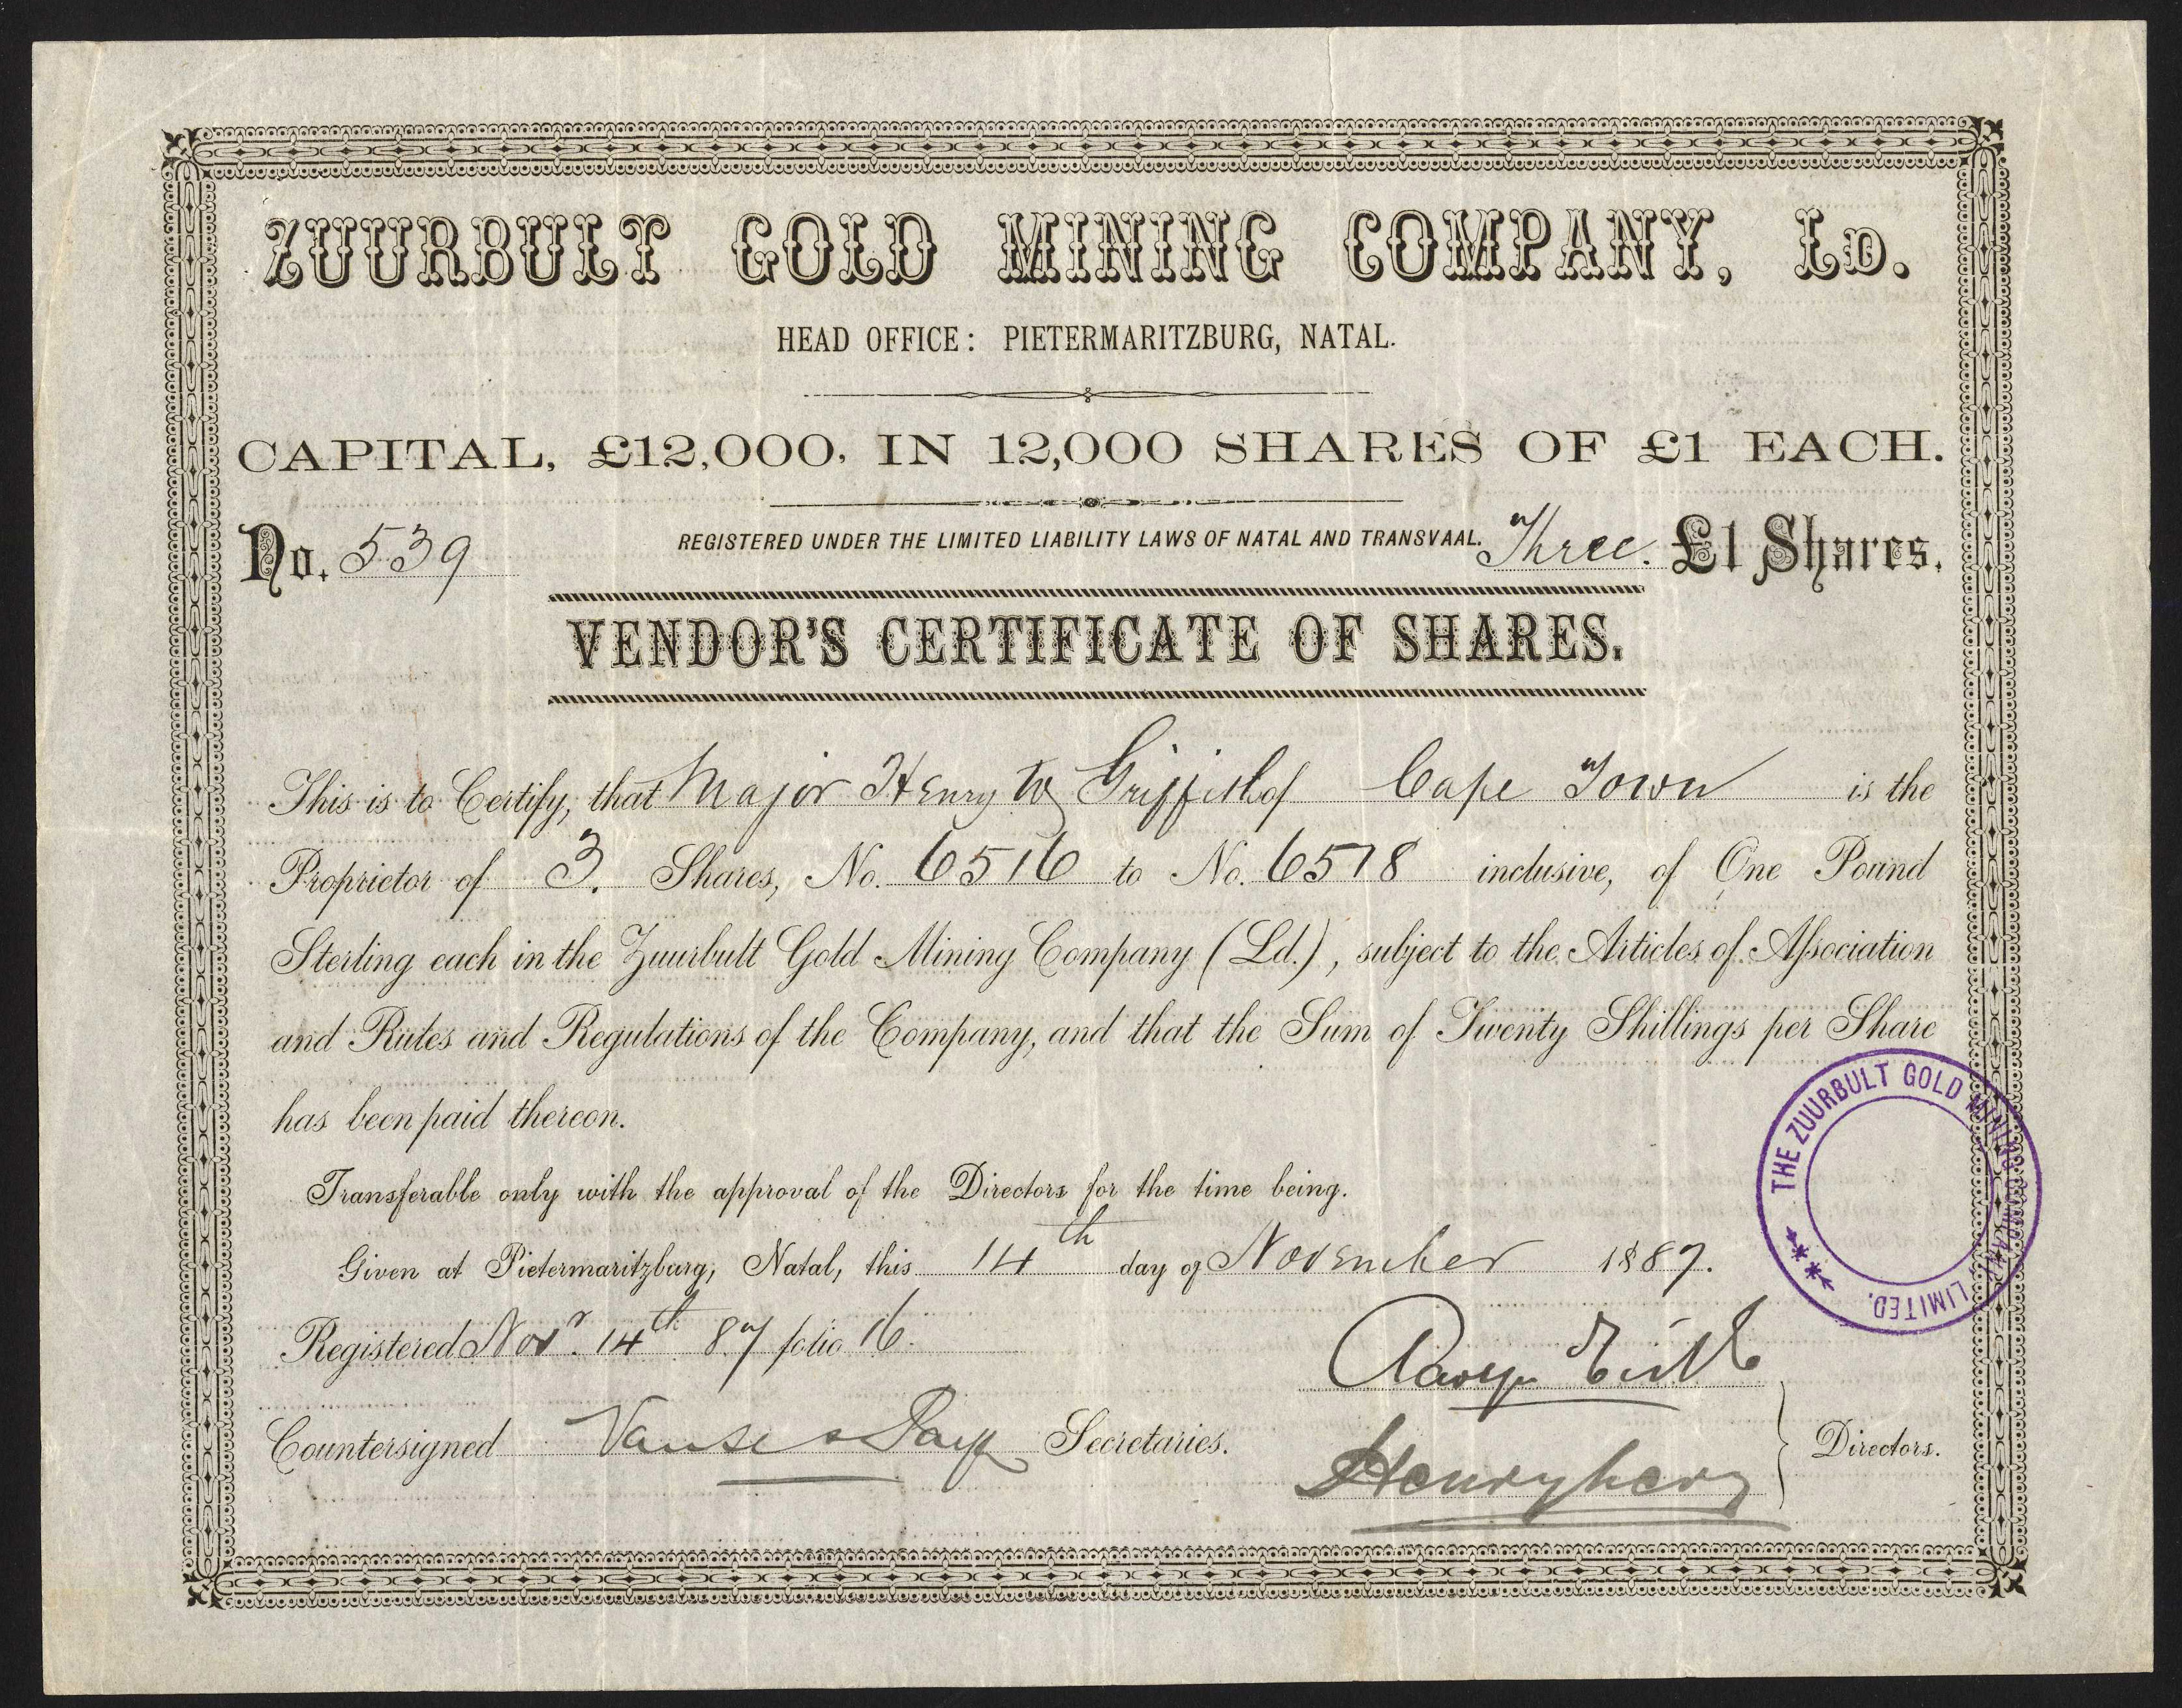 ZUURBULT GOLD MINING COMPANY, LD.
HEAD OFFICE: PIETERMARITZBURG, NATAL.
CAPITAL, £12,000, IN 12,000 SHARES OF £1 EACH.
No. 539
REGISTERED UNDER THE LIMITED LIABILITY LAWS OF NATAL AND TRANSVAAL.
Three. £1 Shares.
VENDOR'S CERTIFICATE OF SHARES.
This is to Certify, that Major Henry W Griffith of Cape Town is the
Proprietor of 3. Shares, No. 6516 to No. 6518 inclusive, of One Pound
Sterling each in the Zuurbult Gold Mining Company (Ld.), subject to the Articles of Association
and Rules and Regulations of the Company, and that the Sum of Twenty Shillings per Share
has been paid thereon.
THE ZUURBULT GOLD MINING COMPANY LIMITED.
Transferable only with the approval of the Directors for the time being.
Given at Pietermaritzburg, Natal, this 14th day of November 1887.
Registered Novr. 14th 87 folio 16.
Countersigned Vanse & Secretaries.
Directors.